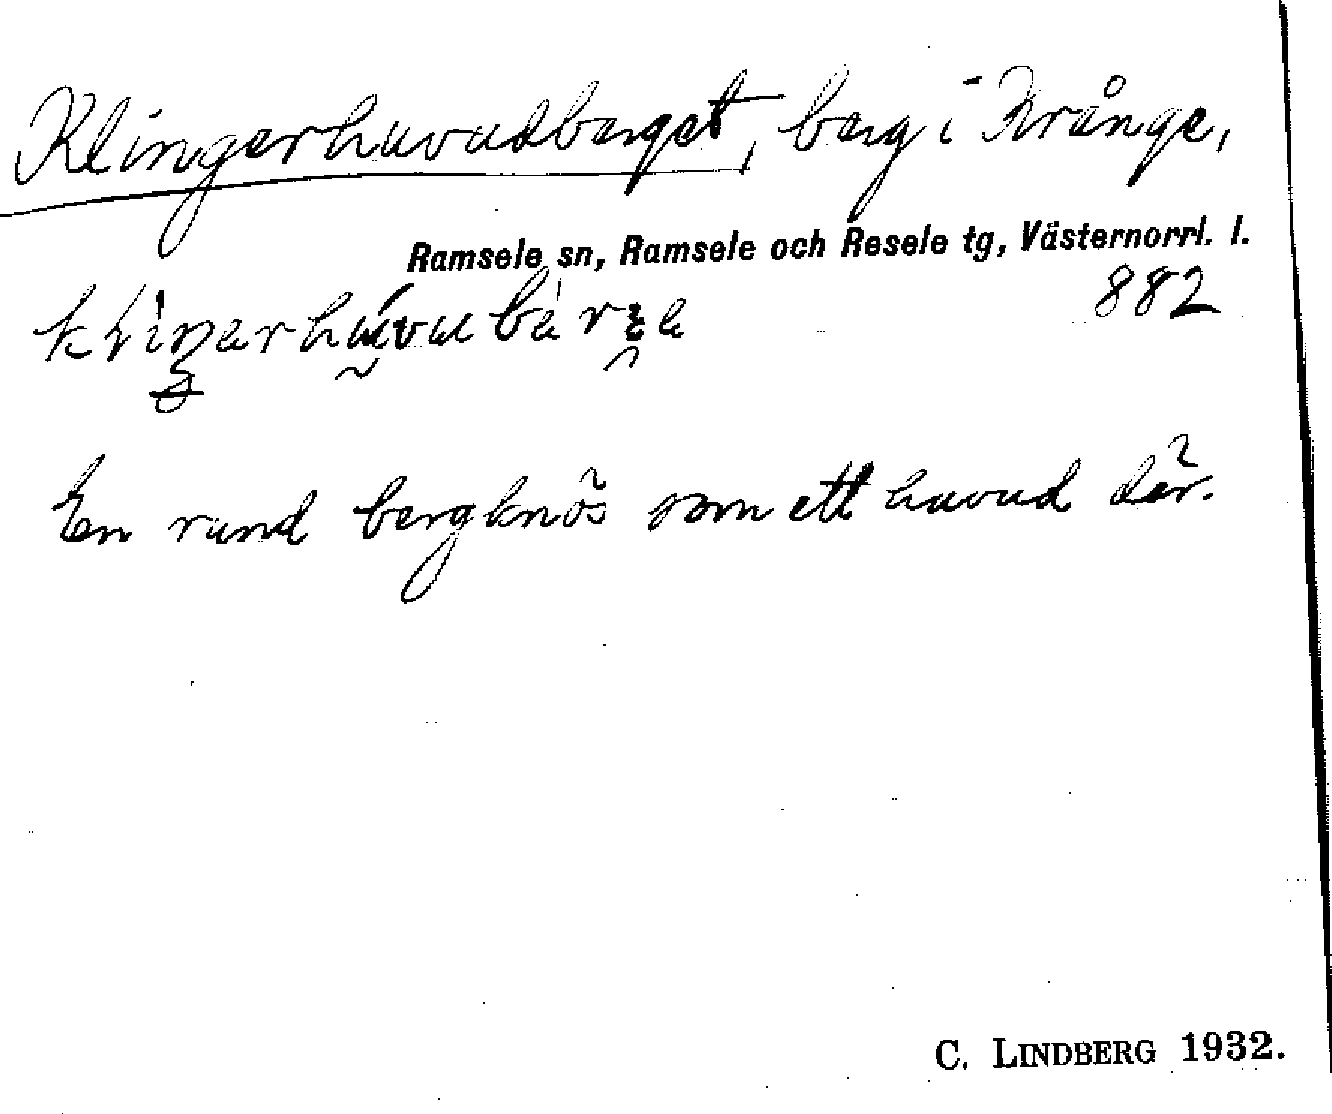 Klingerhuvudberget, berg i Krånge,
Ramsele sn, Ramsele och Resele tg, Västernorrl. l.
882
En rund bergknös som ett huvud där.
C. LINDBERG 1932.